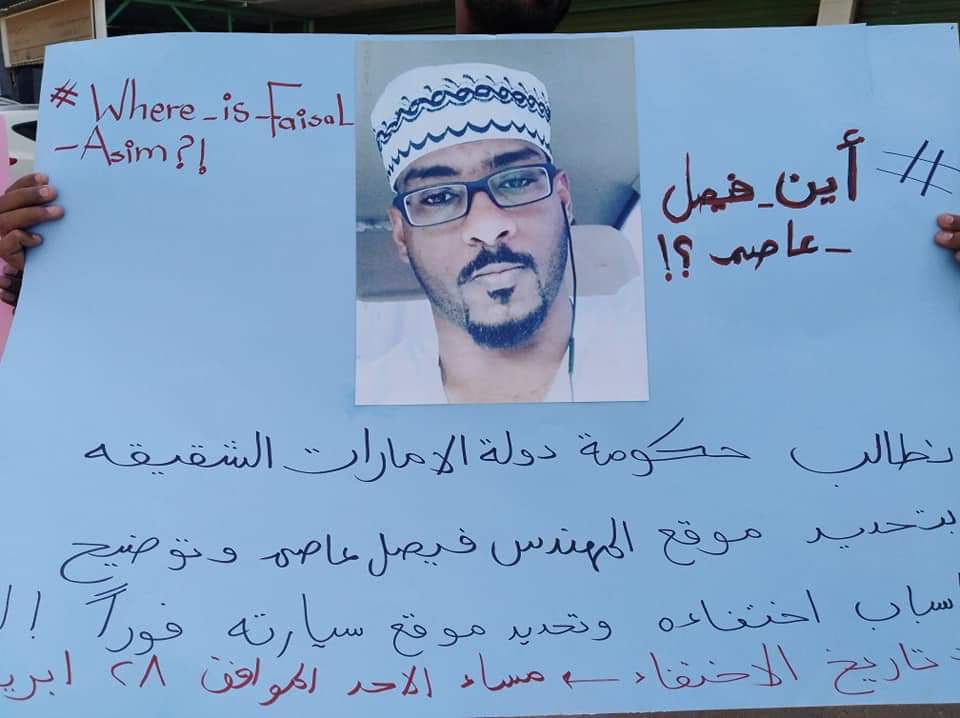 #Where_is_Faisal
_Asim?!
# أين_فيصل
_عاصم ؟!
نطالب حكومة دولة الامارات الشقيقه
بتحديد موقع المهندس فيصل عاصم وتوضيح
سباب اختفاءه وتحديد موقع سيارته فوراً !!
تاريخ الاختفاء ← مساء الاحد الموافق ٢٨ ابري